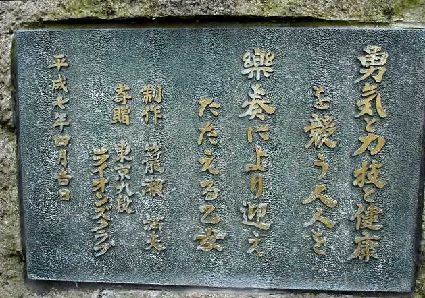 勇気と力技と健康
を競う人人を
樂奏により迎え
たたえる乙女
制作
寄贈 東京九段
ライオンズクラブ
平成七年四月吉日